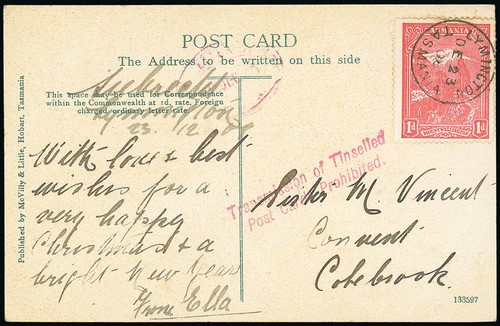 POST CARD
The Address to be written on this side
This space may be used for Correspondence
within the Commonwealth at 1d. rate, Foreign
charged ordinary letter rate.
Lymington
23. /12
With love & best
wishes for a
very happy
Christmas & a
bright New Year
From Ella
Published by McVilly & Little, Hobart, Tasmania
TASMANIA
1d
1d
LYMINGTON
DE 23
TASMANIA
Transmission of Tinselled
Post Cards Prohibited.
Sister M. Vincent
Convent
Colebrook.
133597